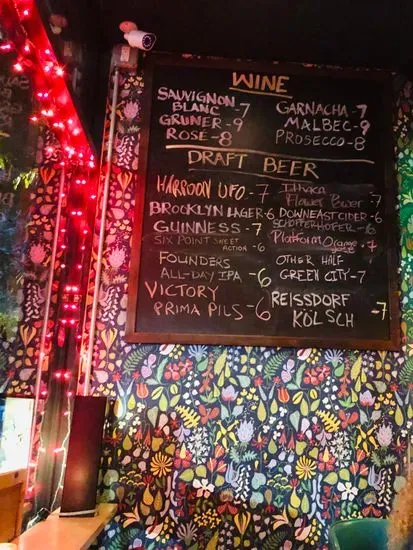 WINE
SAUVIGNON
BLANC -7
GRUNER -9
ROSÉ - 8
GARNACHA - 7
MALBEC - 9
PROSECCO - 8
DRAFT BEER
HARROON UFO - 7
BROOKLYN LAGER - 6
GUINNESS - 7
SIX POINT SWEET
ACTION - 6
FOUNDERS
ALL-DAY IPA - 6
VICTORY
PRIMA PILS - 6
Ithaca
Flower Power - 7
DOWNEAST CIDER - 6
SCHOFFERHOFER - 6
Platform Orange
- 7
OTHER HALF
GREEN CITY - 7
REISSDORF
KÖLSCH - 7